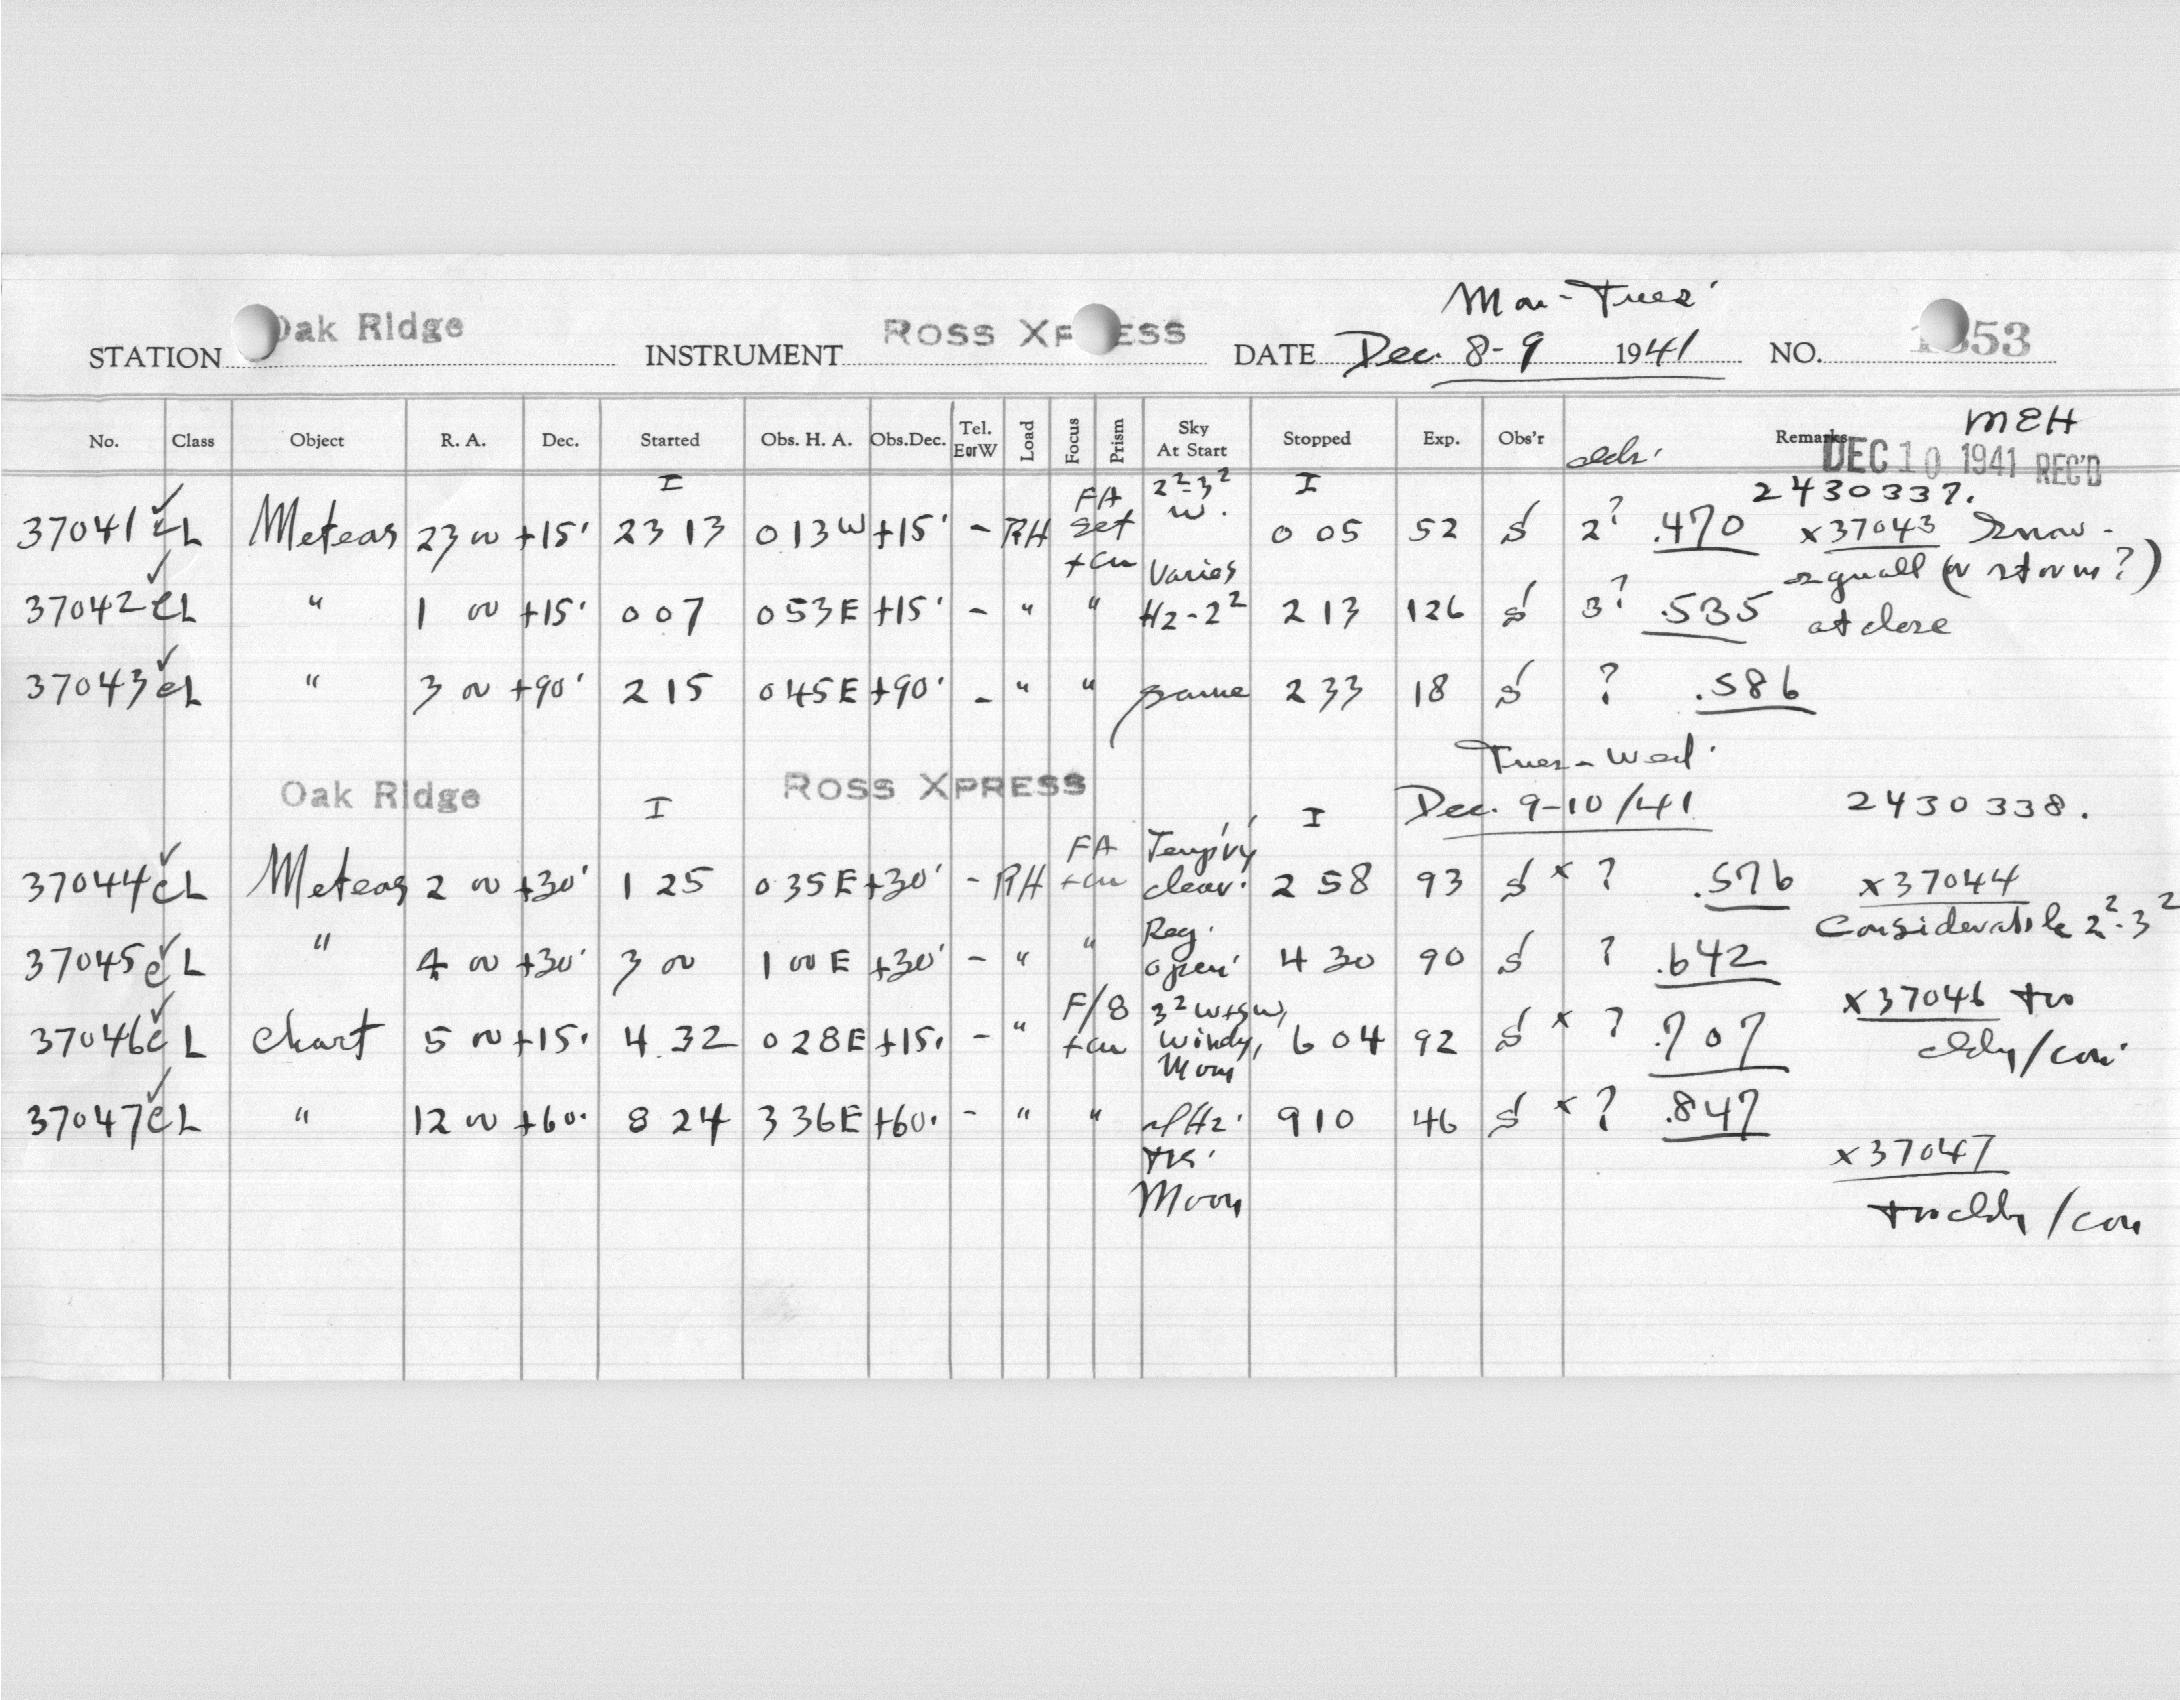 Mon-Tues.
STATION Oak Ridge INSTRUMENT ROSS XPRESS DATE Dec. 8-9 1941 NO. 53
MEH
No. Class Object R. A. Dec. Started Obs. H. A. Obs.Dec. Tel. E or W Load Focus Prism Sky At Start Stopped Exp. Obs'r Remarks
DEC 10 1941 REC'D
I FA 2²-3² I 2430337.
37041 CL Meteors 23 00 +15° 23 13 0 13 W +15° - RH set w. 0 05 52 S 2? .470 x37043 Snow-
+cu Varies squall (or storm?)
37042 CL " 1 00 +15° 0 07 0 53 E +15° - " " Hz-2² 2 13 126 S 3? .535 at close
37043 CL " 3 00 +90° 2 15 0 45 E +90° - " " same 2 33 18 S ? .586
Tues-Wed.
Oak Ridge I ROSS XPRESS I Dec. 9-10/41 2430338.
FA Temp'ry
37044 CL Meteors 2 00 +30° 1 25 0 35 E +30° - RH +cu clear. 2 58 93 S x ? .576 x37044
Reg. Considerable 2²-3²
37045 CL " 4 00 +30° 3 00 1 00 E +30° - " " open 4 30 90 S ? .642
F/8 3² W+SW, x37046 too
37046 CL Chart 5 00 +15° 4 32 0 28 E +15° - " +cu windy, 6 04 92 S x ? .707 cldy/con.
Moon
37047 CL " 12 00 +60° 8 24 3 36 E +60° - " " Hz. 9 10 46 S x ? .847
x37047
Moon too cldy/con